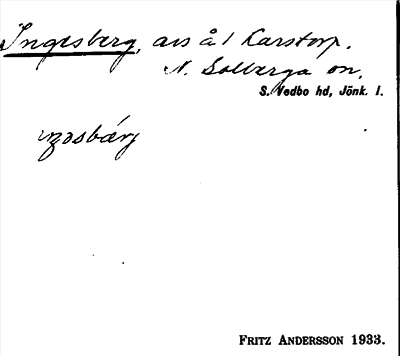 Ingesberg, avs å/ Karstorp.
N. Solberga sn,
S. Vedbo hd, Jönk. l.
FRITZ ANDERSSON 1933.